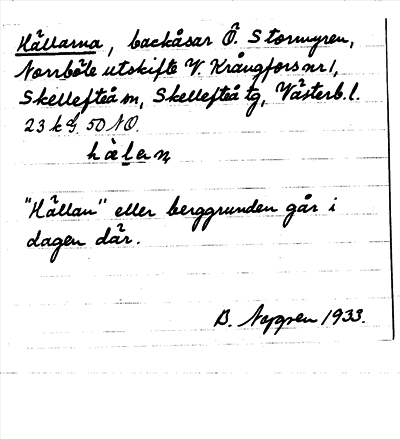 Hällarna, backåsar Ö. Stormyren,
Norrböle utskifte V. Krångfors nr 1,
Skellefteå sn, Skellefteå tg, Västerb. l.
23 k S. 50 NO.
hälan
"Hällan" eller berggrunden går i
dagen där.
B. Nygren 1933.